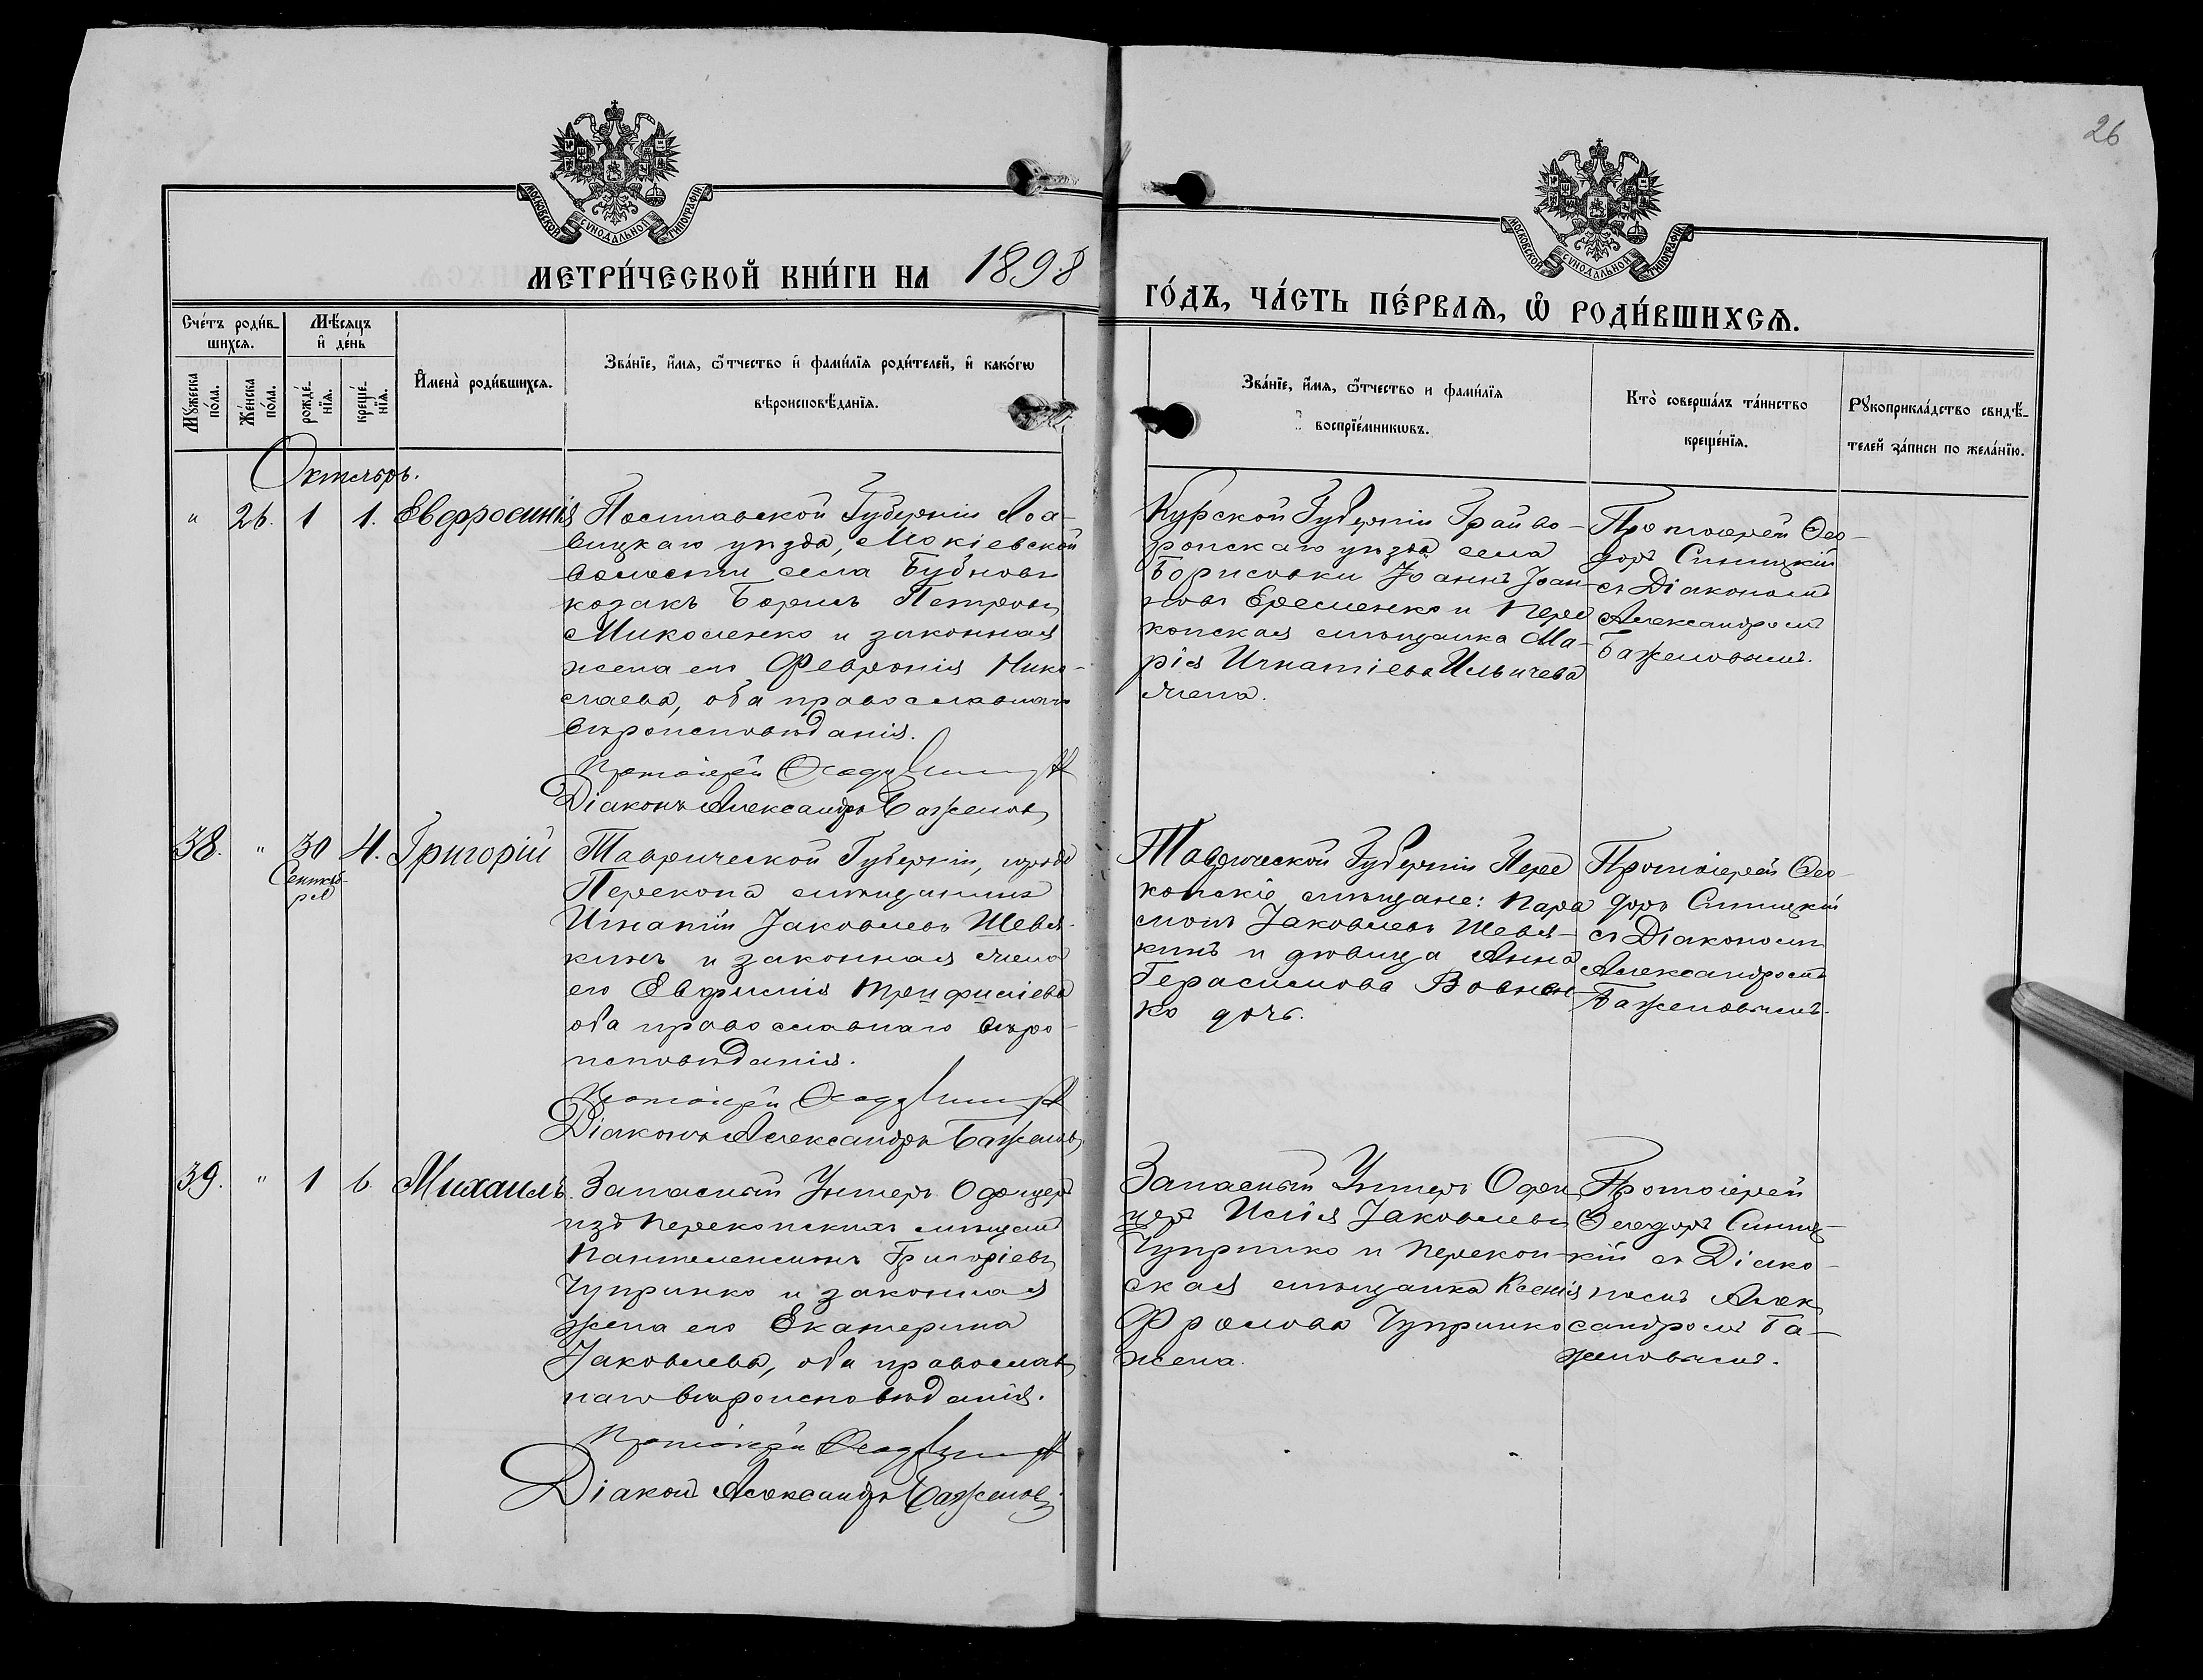 26
МОСКОВСКОЙ СѴНОДАЛЬНОЙ ТИПОГРАФІИ
МОСКОВСКОЙ СѴНОДАЛЬНОЙ ТИПОГРАФІИ
МЕТРИ́ЧЕСКОЙ КНИ́ГИ НА 1898
ГО́ДЪ, ЧА́СТЬ ПЕ́РВАЯ, Ѽ РОДИ́ВШИХСЯ.
Сче́тъ роди́в-
шихся.
Мѣ́сяцъ
и҆ де́нь
Мꙋ́жеска
по́ла.
Же́нска
по́ла.
рожде́-
нїя.
креще́-
нїя.
И҆мена̀ роди́вшихся.
Зва́нїе, и҆́мя, ѻ҆́тчество и҆ фами́лїя роди́телей, и҆ како́гѡ
вѣроисповѣ́данїя.
Зва́нїе, и҆́мя, ѻ҆́тчество и фами́лїя
воспрїе́мникѡвъ.
Кто̀ соверша́лъ та́инство
креще́нїя.
Рꙋкоприкла́дство свидѣ́-
телей за́писи по жела́нїю.
Октябрь.
" 26. 1 1. Евфросинія
Полтавской Губерніи Лох-
вицкаго уѣзда, Мокіевской
волости села Бубновъ
козакъ Борисъ Петровъ
Миколенко и законная
жена его Февронія Нико-
лаева, оба православнаго
вѣроисповѣданія.
Протоіерей Ѳеодоръ Синицкій
Діаконъ Александръ Баженовъ
Курской Губерніи Грайво-
ронскаго уѣзда села
Борисовки Іоаннъ Іоан-
новъ Еременко и Пере
копская мѣщанка Ма-
рія Игнатіева Ильичева
жена.
Протоіерей Ѳео-
доръ Синицкій
съ Діакономъ
Александромъ
Баженовымъ.
38. " 30 4. Григорій
Сентяб-
ря
Таврической Губерніи, города
Перекопа мѣщанинъ
Игнатій Іаковлевъ Шевя-
кинъ и законная жена
его Евфимія Трифиліева
оба православнаго вѣро-
исповѣданія.
Протоіерей Ѳеодоръ Синицкій
Діаконъ Александръ Баженовъ
Таврической Губерніи Пере
копскіе мѣщане: Пара
монъ Іаковлевъ Шевя-
кинъ и дѣвица Анна
Герасимова Вовнен-
ко дочь.
Протоіерей Ѳео-
доръ Синицкій
съ Діакономъ
Александромъ
Баженовымъ.
39. " 1 6. Михаилъ.
Запасный Унтеръ Офицеръ
изъ Перекопскихъ мѣщанъ
Пантелеимонъ Григоріевъ
Чупринко и законная
жена его Екатерина
Іаковлева, оба православ
наго вѣроисповѣданія.
Протоіерей Ѳеодоръ Синицкій
Діаконъ Александръ Баженовъ
Запасный Унтеръ Офи
церъ Илія Іаковлевъ
Чупринко и Перекоп-
ская мѣщанка Ксенія
Фролова Чупринко
жена.
Протоіерей
Ѳеодоръ Синиц-
кій съ Діако-
номъ Алек
сандромъ Ба-
женовымъ.